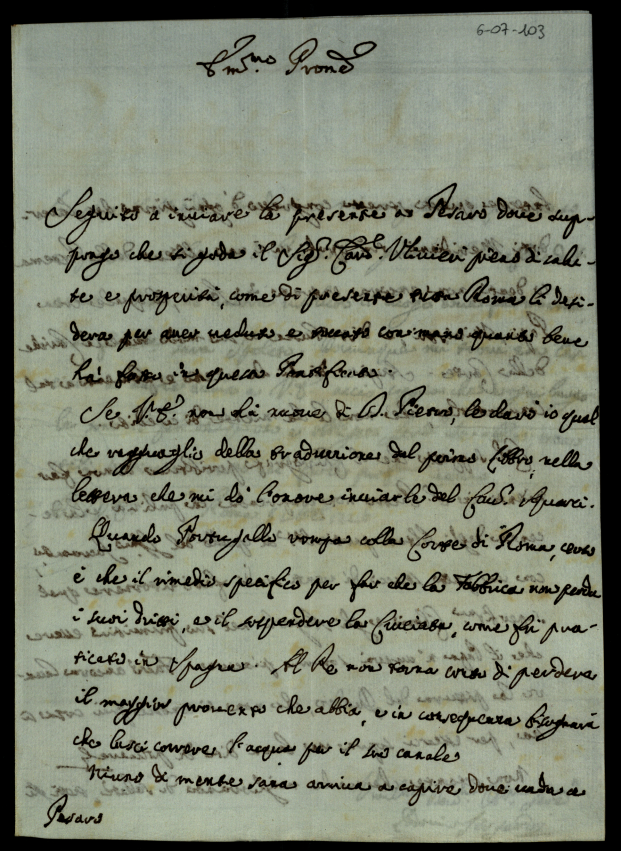 6-07-103
Em.mo Prone
Seguito a inviare la presente a Pesaro dove sup-
pongo che si goda il Sig.r Card.l Ulivieri pieno di salu-
te e prosperità, come di presente tutta Roma li desi-
dera per aver veduto e con mano quanto bene
hà fatto in questa
Se V.E. non dà nuove di S. Pietro, le darò io qual
che ragguaglio della traduzione del primo Libro, nella
lettera che mi dò l'onore inviarle del Squarci.
Quando Portugallo rompa colla Corte di Roma, certo
è che il rimedio specifico per far che la Fabbrica non perda
i suoi dritti, e il sospendere la Cruciata, come fù pra-
ticato in Spagna. Al Re non torna conto di perdere
il maggior provento che abbia, e in conseguenza bisognerà
che lasci correre l'acqua per il suo canale
Niuno di mente sana arriva a capire dove vada a
Pesaro